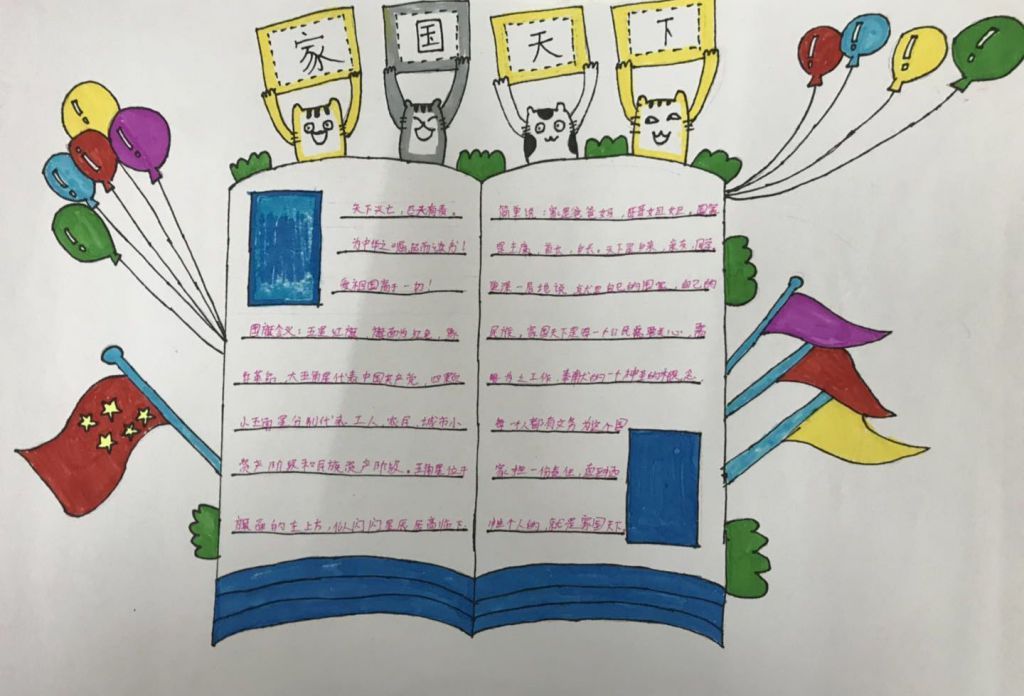 家国天下
天下兴亡，匹夫有责。
为中华之崛起而读书！
爱祖国高于一切！
国旗含义：五星红旗，旗面为红色，象
征革命，大五角星代表中国共产党，四颗
小五角星分别代表工人，农民，城市小
资产阶级和民族资产阶级。五角星位于
旗面的左上方，似闪闪星辰居高临下。
简单说：家是爸爸妈妈，哥哥姐姐，国家
是主席，首长，自来，亲友，同学
更深一层地说，就是自己的国家，自己的
民族，家国天下是每一个公民需要关心，需
要为之工作，奉献的一个神圣的概念，
每个人都有义务为这个国
家担一份责任，
担个人的，就是家国天下